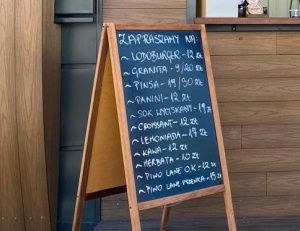 ZAPRASZAMY NA:
~ LODOBURGER - 12 zł
~ GRANITA - 9/20 zł
~ PINSA - 19/30 zł
~ PANINI - 12 zł
~ SOK WYCISKANY - 19 zł
~ CROISSANT - 12 zł
~ LEMONIADA - 17 zł
~ KAWA - 12 zł
~ HERBATA - 10 zł
~ PIWO LANE 0.K - 12 zł
~ PIWO LANE - 15 zł